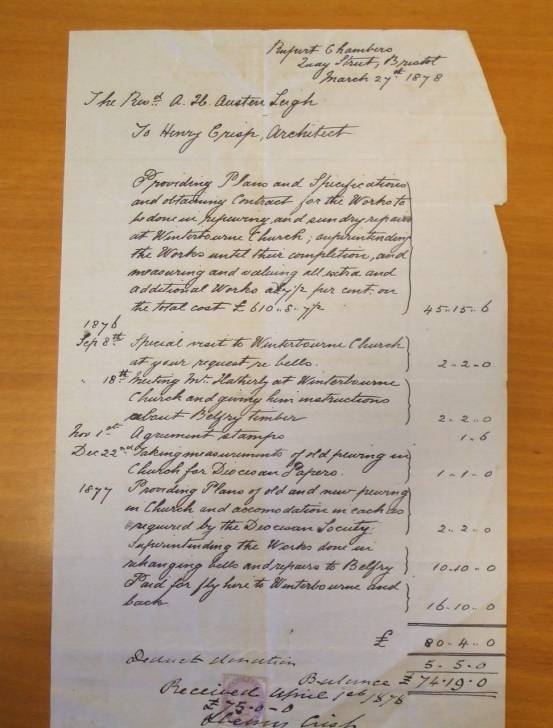 Rupert Chambers
Quay Street, Bristol
March 27th 1878
The Revd. A. H. Austen Leigh
To Henry Crisp, Architect
Providing Plans and Specifications
and obtaining Contract for the Works to
be done in repewing, and sundry repairs
at Winterbourne Church; superintending
the Works until their completion, and
measuring and valuing all extra and
additional Works at 7½ per cent: on
the total cost £610-8-7½ 45-15-6
1876
Sep 8th Special visit to Winterbourne Church
at your request, re bells. 2-2-0
" 18th Meeting Mr. Hatherly at Winterbourne
Church and giving him instructions
about Belfry timber 2-2-0
Nov 1st Agreement stamps 1-6
Dec 22nd Taking measurements of old pewing in
Church for Diocesan Papers. 1-1-0
1877 Providing Plans of old and new pewing
in Church and accomodation in each as
required by the Diocesan Society 2-2-0
Superintending the Works done in
rehanging bells and repairs to Belfry 10-10-0
Paid for fly hire to Winterbourne and
back 16-10-0
£ 80-4-0
Deduct donation 5-5-0
Balance £ 74-19-0
Received April 1st 1878
£75-0-0
Henry Crisp